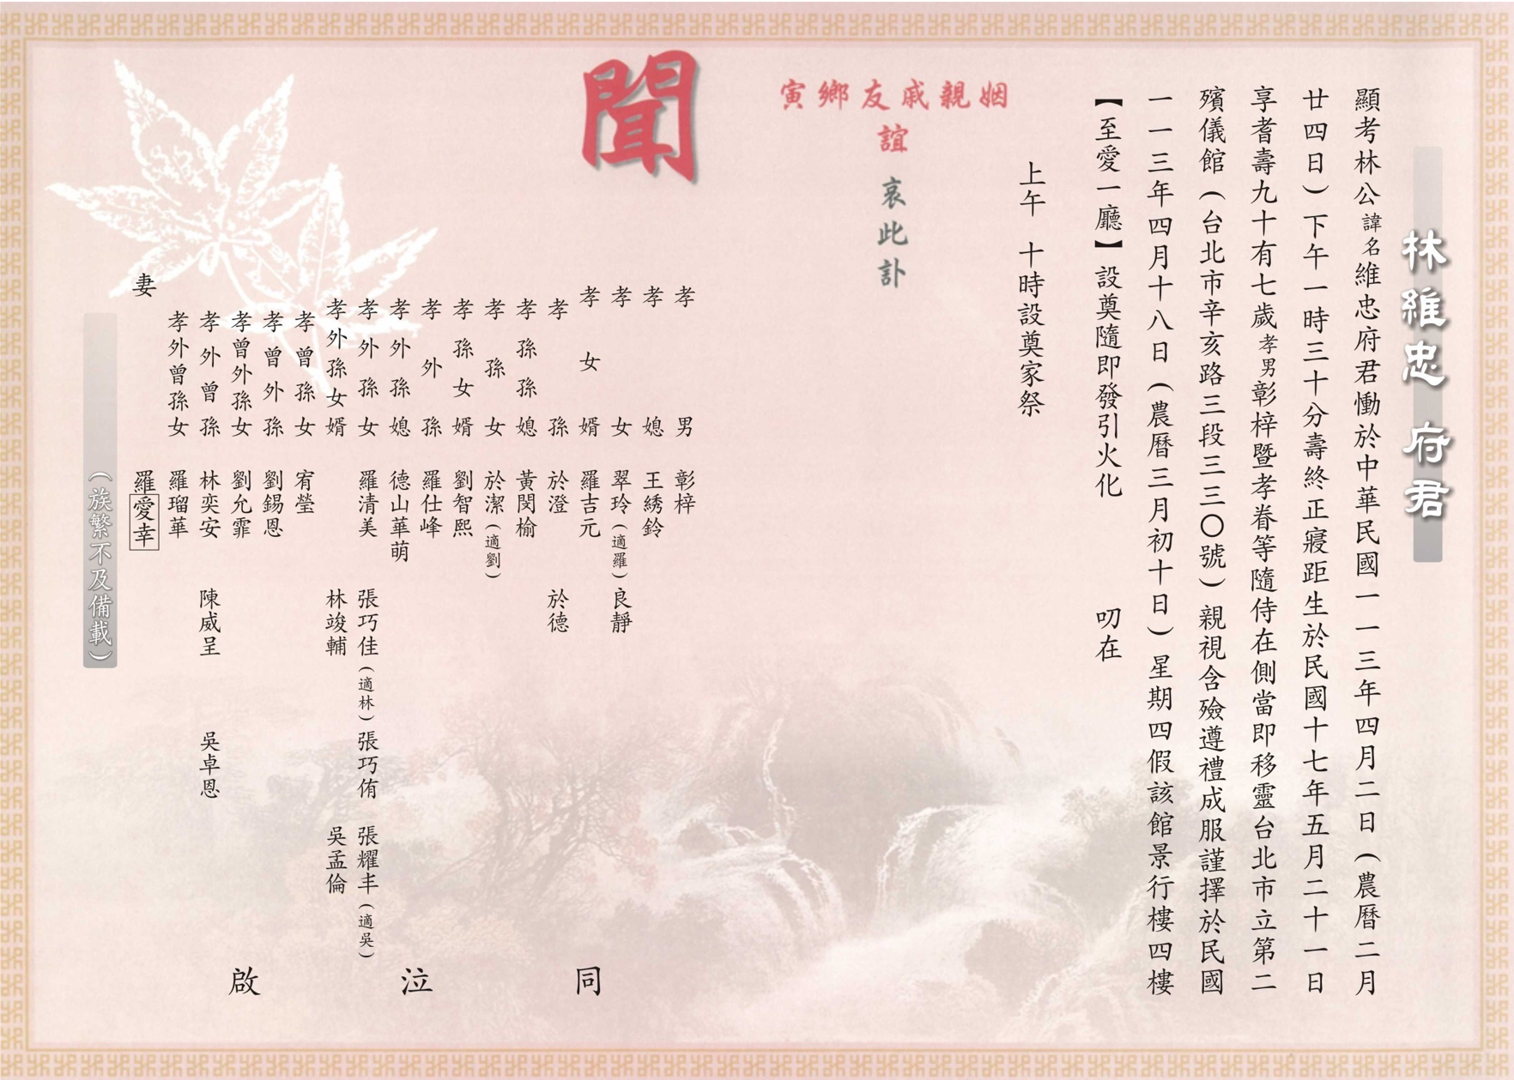 林維忠 府君
顯考林公諱名維忠府君慟於中華民國一一三年四月二日(農曆二月
廿四日)下午一時三十分壽終正寢距生於民國十七年五月二十一日
享耆壽九十有七歲孝男彰梓暨孝眷等隨侍在側當即移靈台北市立第二
殯儀館(台北市辛亥路三段三三〇號)親視含殮遵禮成服謹擇於民國
一一三年四月十八日(農曆三月初十日)星期四假該館景行樓四樓
【至愛一廳】設奠隨即發引火化 叨在
上午 十時設奠家祭
姻親戚友鄉寅
誼
哀此訃
聞
孝男 彰梓
孝媳 王綉鈴
孝女 翠玲(適羅)良靜
孝女婿 羅吉元
孝孫 於澄 於德
孝孫媳 黃閔榆
孝孫女 於潔(適劉)
孝孫女婿 劉智熙
孝外孫 羅仕峰
孝外孫媳 德山華萌
孝外孫女 羅清美 張巧佳(適林)張巧侑 張耀丰(適吳)
孝外孫女婿 林竣輔 吳孟倫
孝曾孫女 宥瑩
孝曾外孫 劉錫恩
孝曾外孫女 劉允霏
孝外曾孫 林奕安 陳威呈 吳卓恩
孝外曾孫女 羅瑠華
妻 羅愛幸
同
泣
啟
(族繁不及備載)